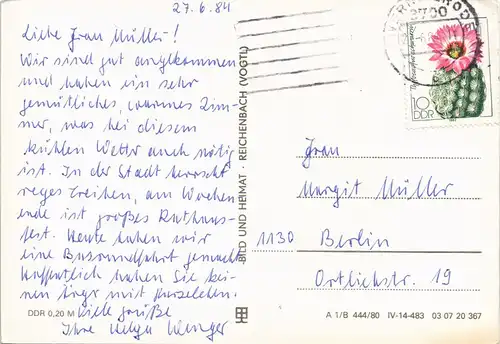 27.6.84
Liebe Frau Müller!
Wir sind gut angekommen
und haben ein sehr
gemütliches, warmes Zim-
mer, was bei diesem
kühlen Wetter auch nötig
ist. In der Stadt herrscht
reges Treiben, am Wochen
ende ist großes Rathaus-
fest. Heute haben wir
eine Busrundfahrt gemacht
Hoffentlich haben Sie kei-
nen Ärger mit
Viele Grüße
Ihre Helga
DDR 0,20 M
BILD UND HEIMAT · REICHENBACH (VOGTL)
3700
10
DDR
Frau
Margit Müller
1130 Berlin
Ortliebstr. 19
A 1/B 444/80 IV-14-483 03 07 20 367